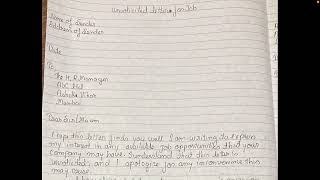 Unsolicited letter for Job
Name of Sender
Address of Sender
Date
To
The H.R Manager
ABC Ltd
Ashoka Vihar
Mumbai
Dear Sir/Ma'am
I hope this letter finds you well. I am writing to express
my interest in any available job opportunities that your
company may have. I understand that this letter is
unsolicited, and I apologize for any inconvenience this
may cause.